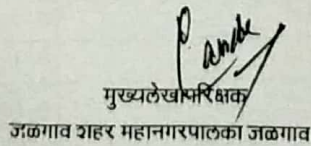 मुख्यलेखापरिक्षक
जळगाव शहर महानगरपालका जळगाव